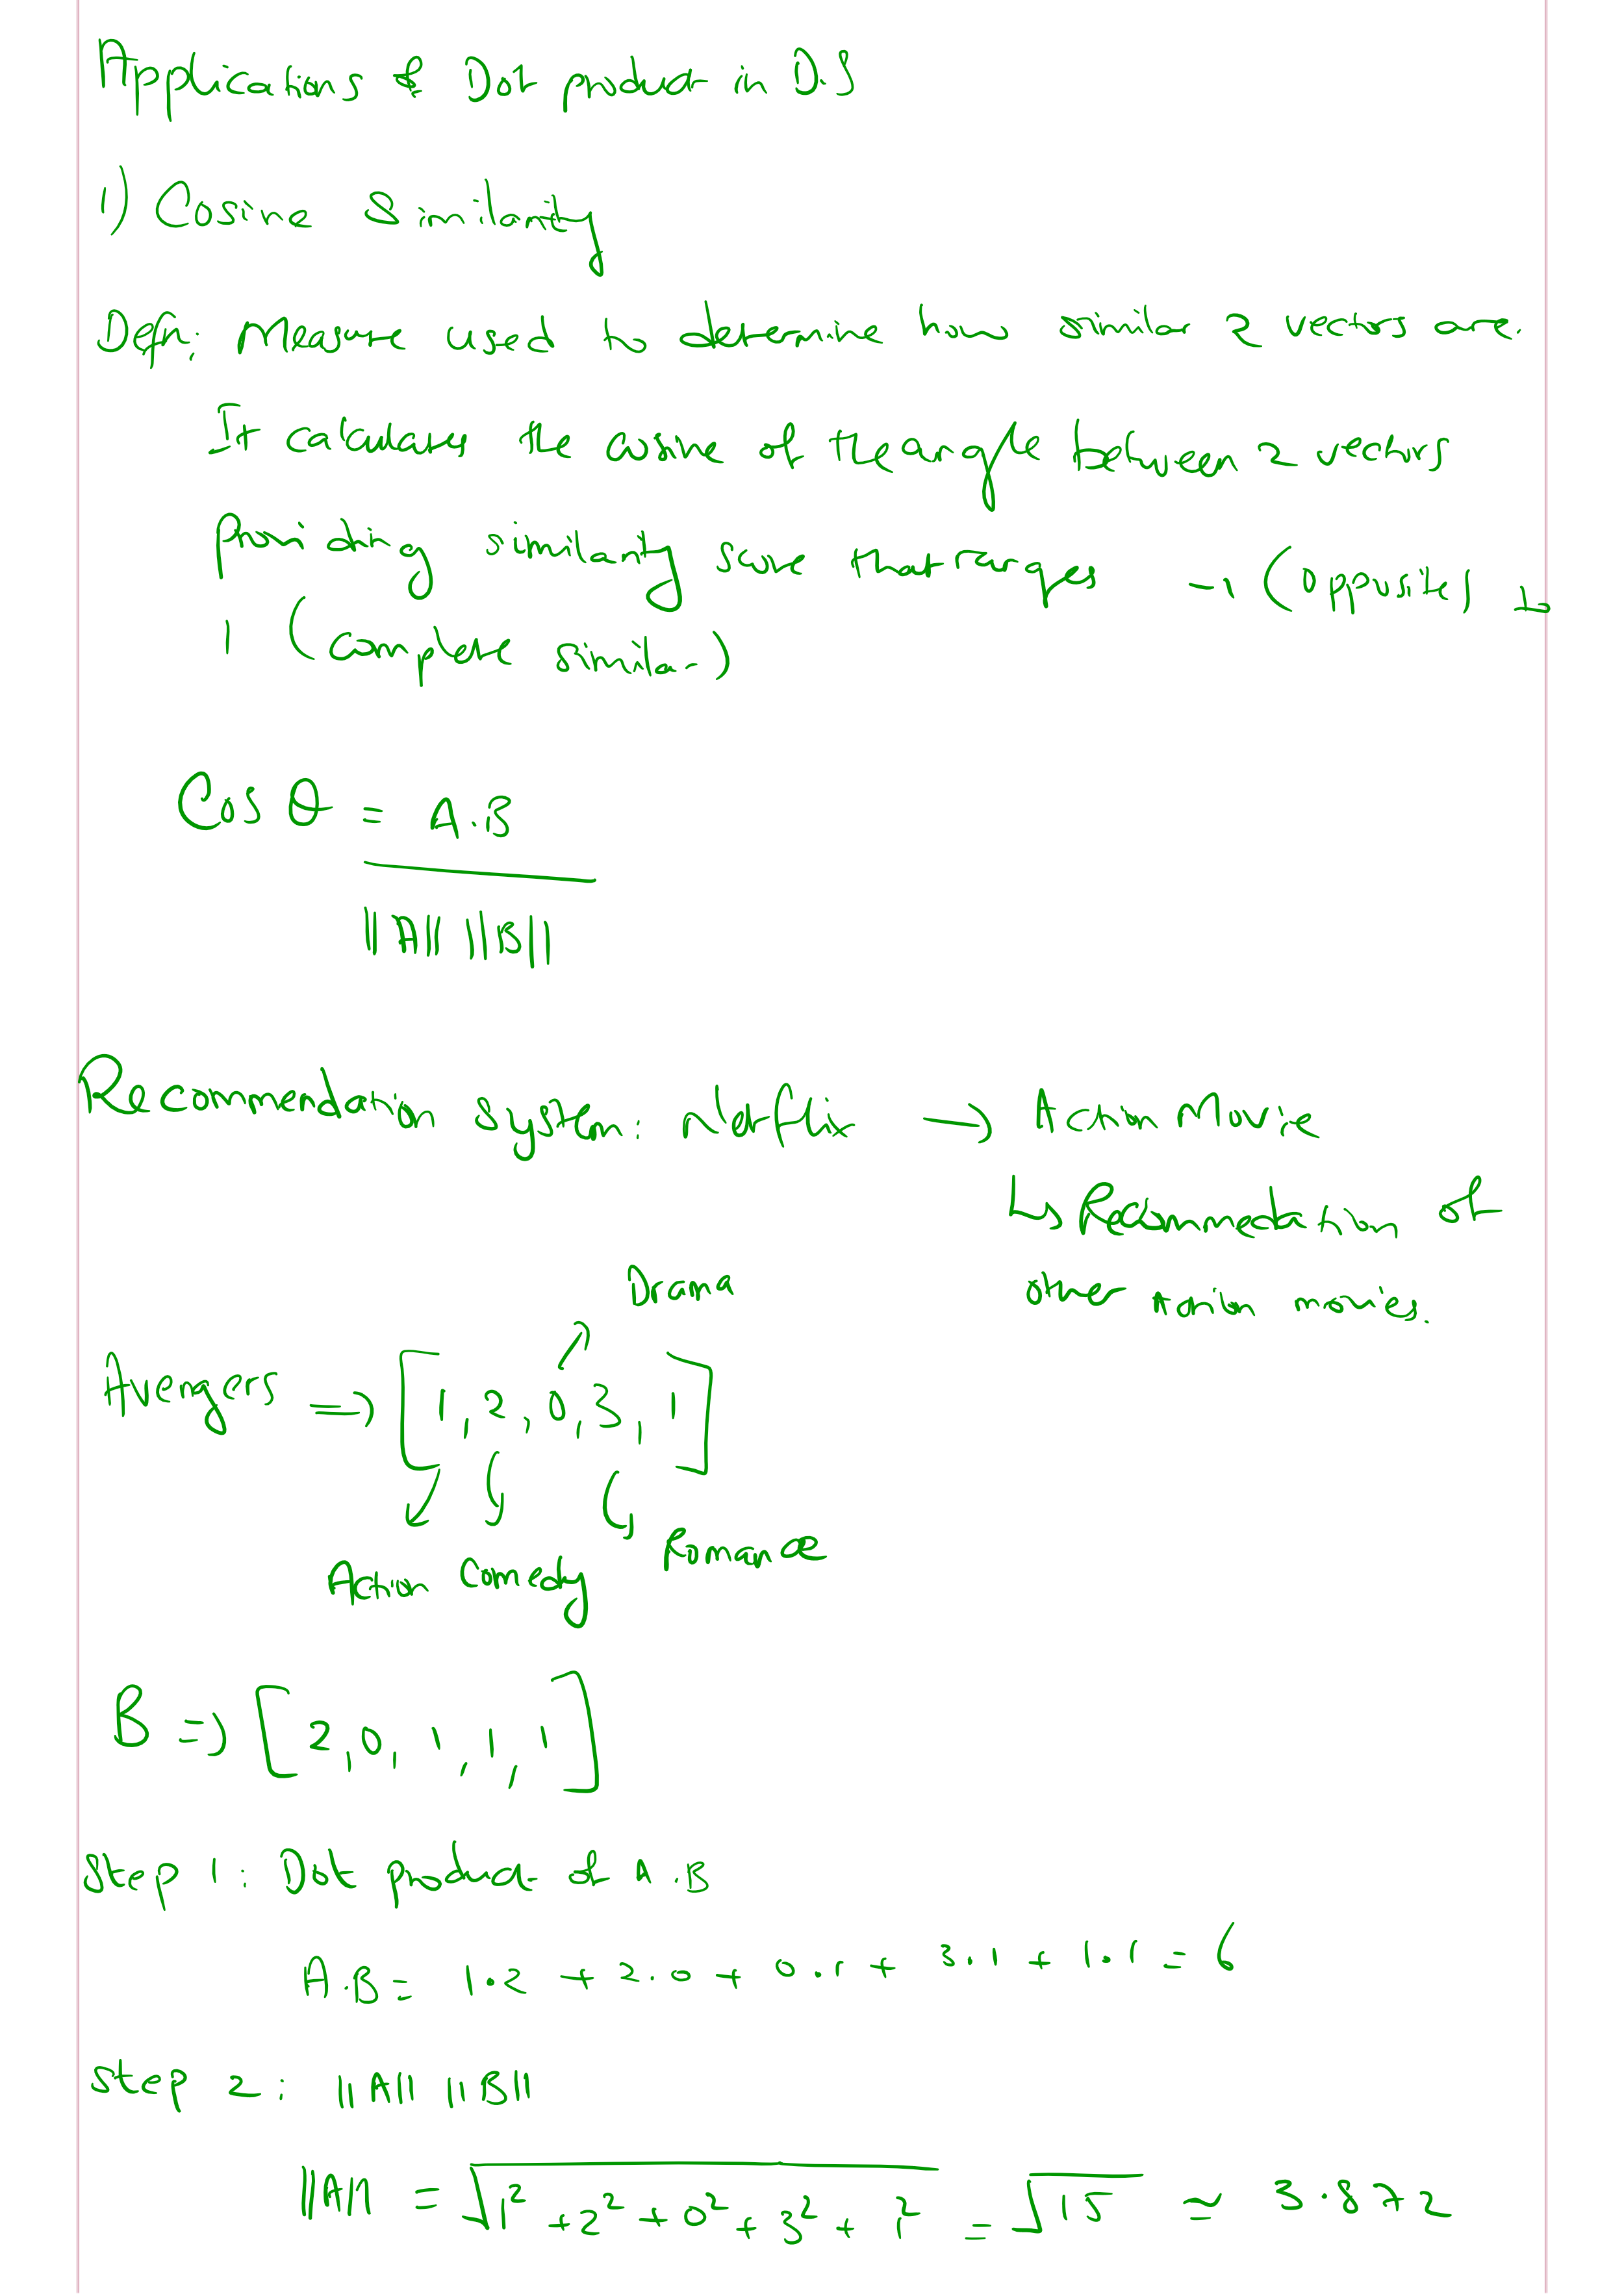 Applications of Dot product in D.S
1) Cosine Similarity
Defn: Measure used to determine how similar 2 vectors are.
It calculates the cosine of the angle between 2 vectors
providing similarity score that ranges -1 (opposite) to
1 (complete similar)
Cos θ = A.B
||A|| ||B||
Recommendation System: Netflix → Action Movie
↳ Recommedation of
other Action movies.
Drama
Avengers ⇒ [1, 2, 0, 3, 1]
Action Comedy Romance
B ⇒ [2, 0, 1, 1, 1]
Step 1: Dot product of A.B
A.B = 1.2 + 2.0 + 0.1 + 3.1 + 1.1 = 6
Step 2: ||A|| ||B||
||A|| = √1² + 2² + 0² + 3² + 1² = √15 ≃ 3.872